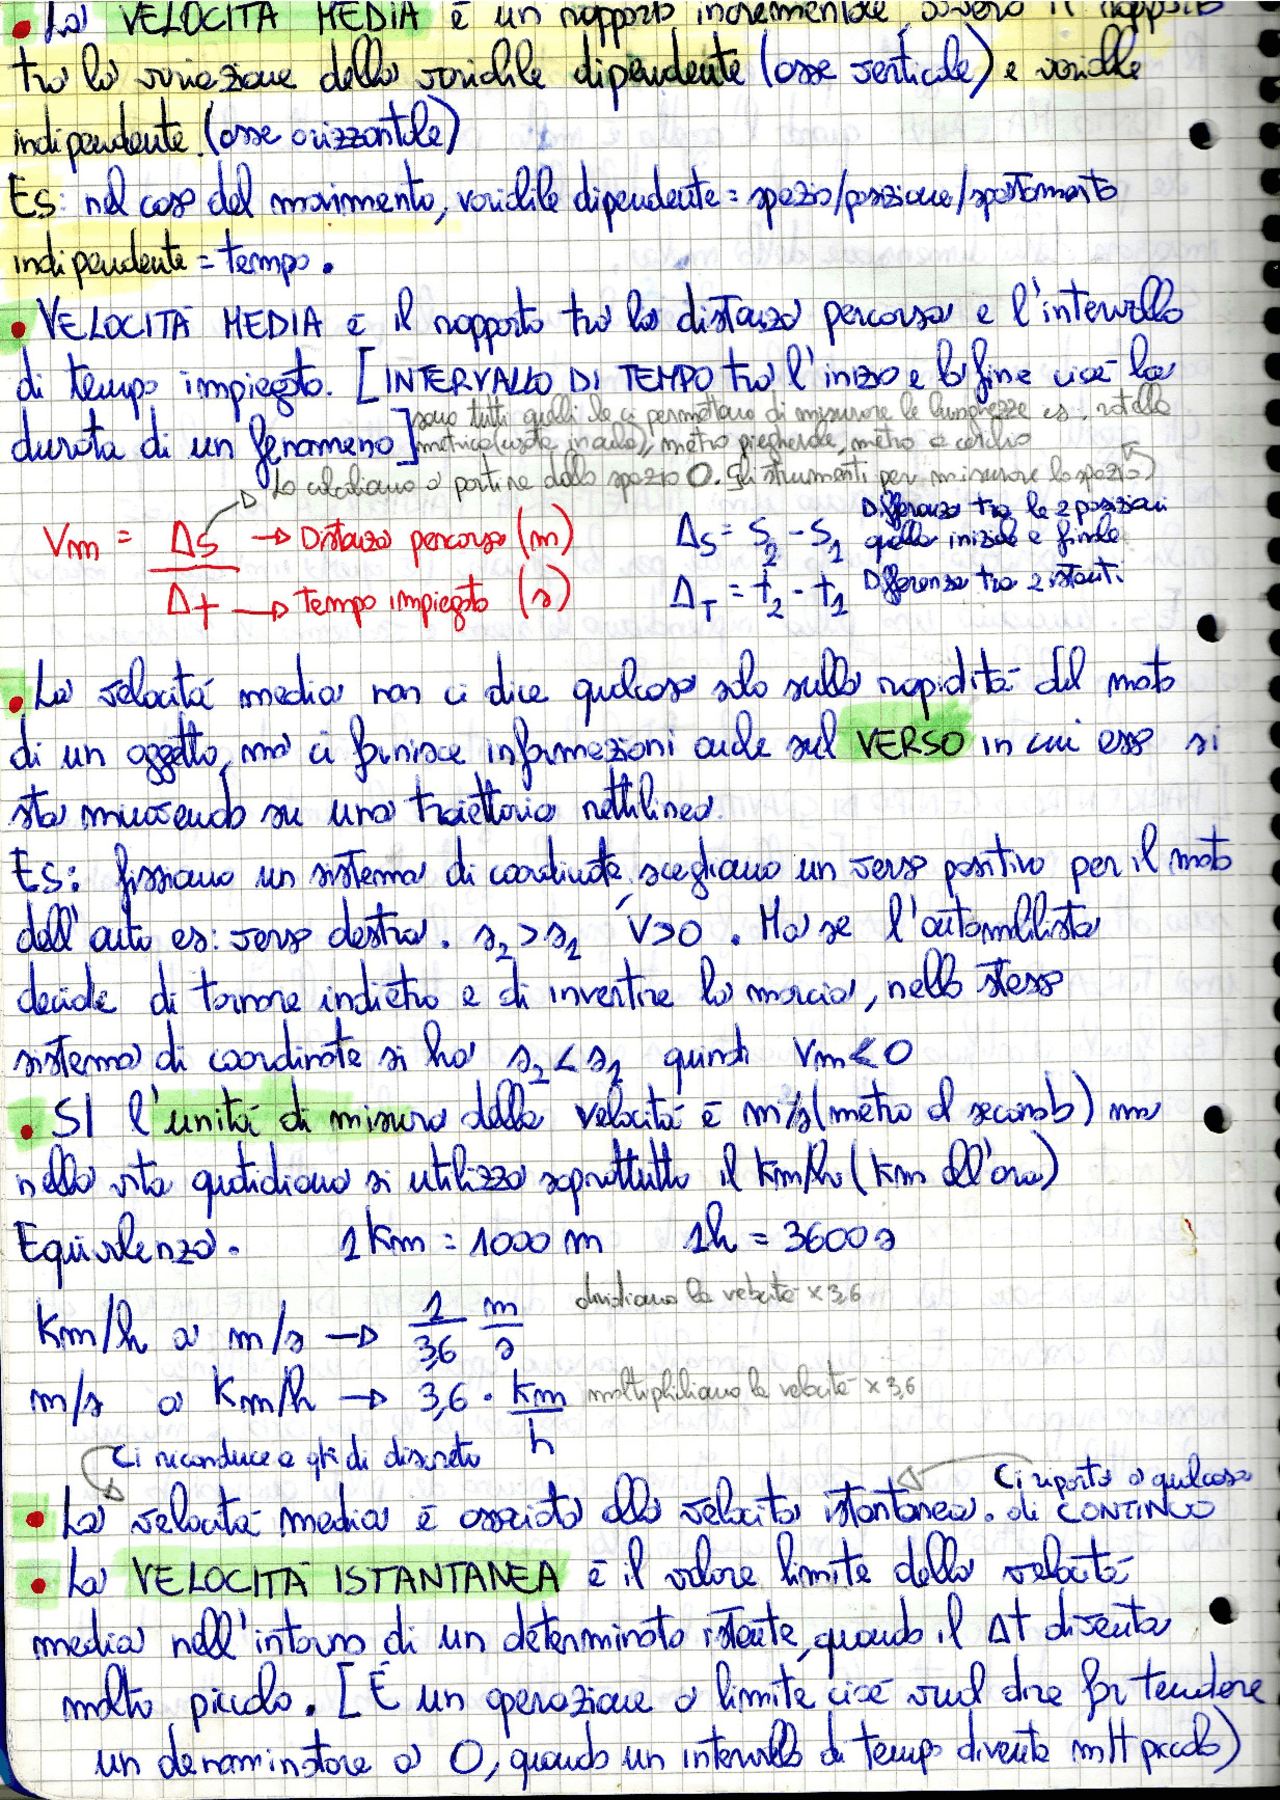 • La VELOCITÀ MEDIA è un rapporto incrementale, ovvero il rapporto
tra la variazione della variabile dipendente (asse verticale) e variabile
indipendente. (asse orizzontale)
Es: nel caso del movimento, variabile dipendente = spazio/posizione/spostamento
indipendente = tempo.
• VELOCITÀ MEDIA è il rapporto tra la distanza percorsa e l'intervallo
di tempo impiegato. [INTERVALLO DI TEMPO tra l'inizio e la fine cioè la
durata di un fenomeno]
sono tutti quelli che ci permettono di misurare le lunghezze es. rotella
metrica (usata in aula), metro pieghevole, metro a
Lo calcoliamo a partire dallo spazio 0. Gli strumenti per misurare lo spazio
Vm = Δs → Distanza percorsa (m)
Δt → Tempo impiegato (s)
Δs = S2 - S1 Differenza tra le 2 posizioni
quella iniziale e finale
ΔT = t2 - t1 Differenza tra 2 istanti.
• La velocità media non ci dice qualcosa solo sulla rapidità del moto
di un oggetto, ma ci fornisce informazioni anche sul VERSO in cui esso si
sta muovendo su una traiettoria rettilinea.
Es: fissiamo un sistema di coordinate, scegliamo un verso positivo per il moto
dell'auto es: verso destra. s2 > s1 V>0. Ma se l'automobilista
decide di tornare indietro e di invertire la marcia, nello stesso
sistema di coordinate si ha s2 < s1 quindi Vm<0
• SI l'unità di misura della velocità è m/s (metro al secondo) ma
nella vita quotidiana si utilizza soprattutto il Km/h (Km all'ora)
Equivalenza. 1 Km = 1000 m 1h = 3600 s
dividiamo la velocità x 3,6
Km/h a m/s → 1/3,6 m/s
m/s a Km/h → 3,6 · Km/h moltiplichiamo la velocità x 3,6
Ci riconduce a qlk di discreto
Ci riporta a qualcosa
• La velocità media è associata alla velocità istantanea. di CONTINUO
• La VELOCITÀ ISTANTANEA è il valore limite della velocità
media nell'intorno di un determinato istante, quando il Δt diventa
molto piccolo. [È un operazione a limite, cioè vuol dire far tendere
un denominatore a 0, quando un intervallo di tempo diventa molt piccolo)